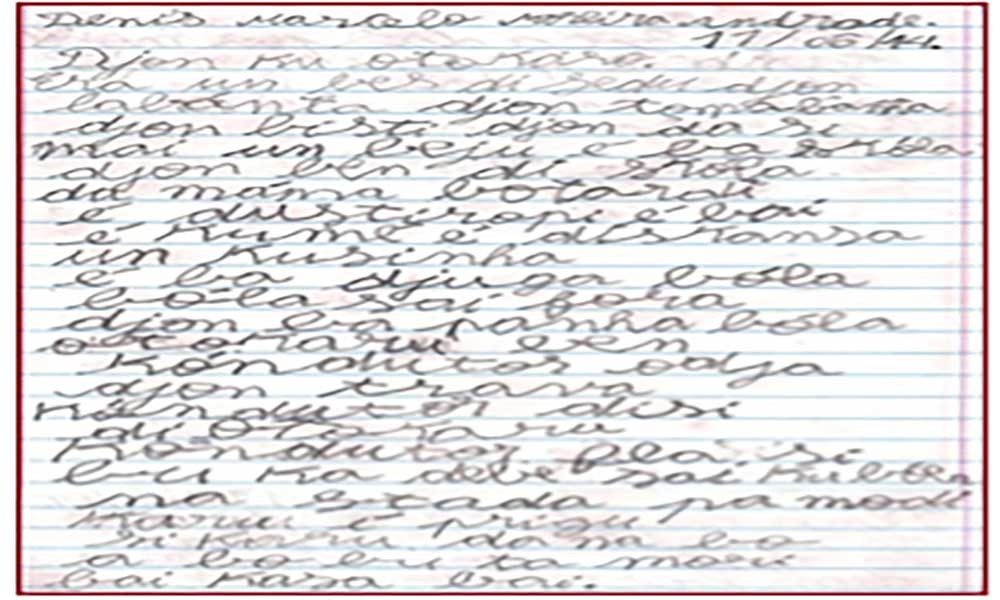 Denis Marcelo Moreira andrade.
17/06/14.
Djon ku otokaro.
Era un bes di sedu djon
labanta djon toma banha
djon bisti djon da si
mai un beju e ba skóla
djon ben di skóla
da mánma botardi
e dusti ropi é bai
é kumé é diskansa
un kusinha
é ba djuga bóla
bóla sai fora
djon ba panha bóla
otokaru ben
kóndutor odja
djon trava
kóndutor disi
di otokaru
kóndutor fla si
bu ka debe sai ku bóla
na stada pa modi
karu é prigu
si karu da na bo
a bo bu ta mori
bai kasa bai.